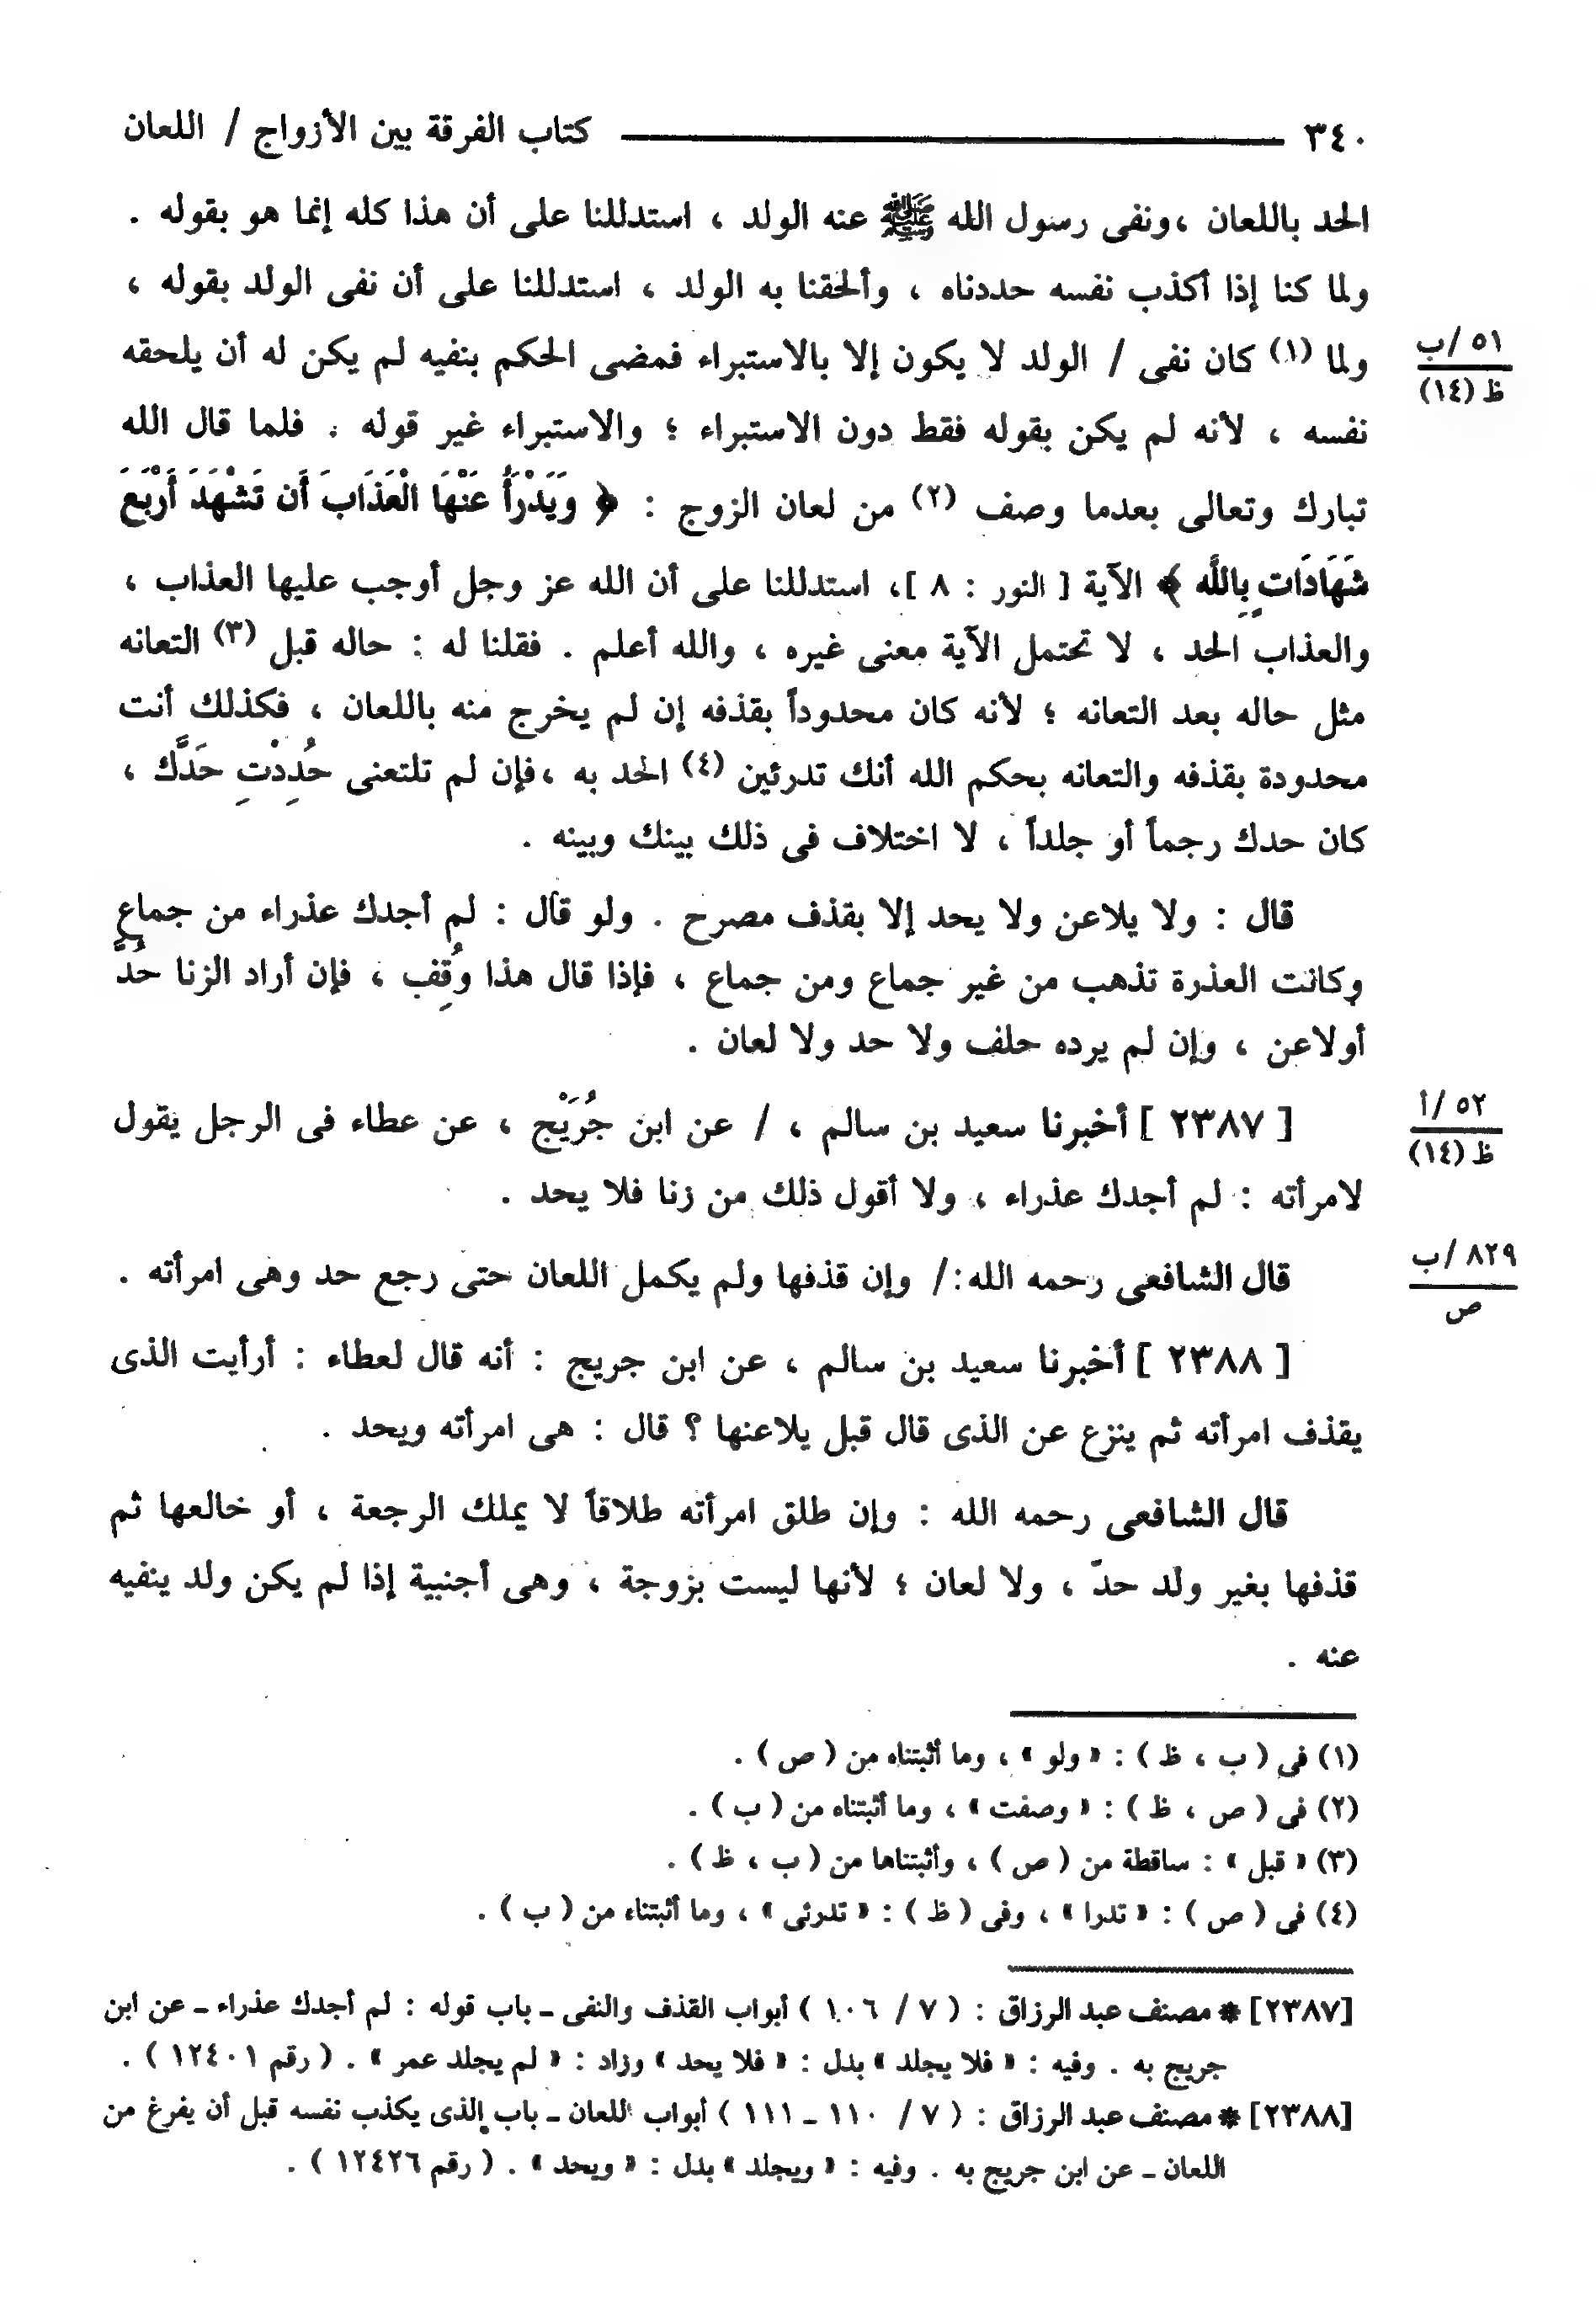 ٣٤٠ كتاب الفرقة بين الأزواج / اللعان
الحد باللعان ،ونفى رسول الله ﷺ عنه الولد ، استدللنا على أن هذا كله إنما هو بقوله .
ولما كنا إذا أكذب نفسه حددناه ، وألحقنا به الولد ، استدللنا على أن نفى الولد بقوله ،
ولما (١) كان نفى / الولد لا يكون إلا بالاستبراء فمضى الحكم بنفيه لم يكن له أن يلحقه
٥١ /ب
ظ (١٤)
نفسه ، لأنه لم يكن بقوله فقط دون الاستبراء ؛ والاستبراء غير قوله . فلما قال الله
تبارك وتعالى بعدما وصف (٢) من لعان الزوج : ﴿ وَيَدْرَأُ عَنْهَا الْعَذَابَ أَن تَشْهَدَ أَرْبَعَ
شَهَادَاتٍ بِاللَّهِ ﴾ الآية [ النور : ٨ ]، استدللنا على أن الله عز وجل أوجب عليها العذاب ،
والعذاب الحد ، لا تحتمل الآية معنى غيره ، والله أعلم . فقلنا له : حاله قبل (٣) التعانه
مثل حاله بعد التعانه ؛ لأنه كان محدوداً بقذفه إن لم يخرج منه باللعان ، فكذلك أنت
محدودة بقذفه والتعانه بحكم الله أنك تدرئين (٤) الحد به ،فإن لم تلتعنى حُدِدْتِ حَدَّكِ ،
كان حدك رجماً أو جلداً ، لا اختلاف فى ذلك بينك وبينه .
قال : ولا يلاعن ولا يحد إلا بقذف مصرح . ولو قال : لم أجدك عذراء من جماعٍ
وكانت العذرة تذهب من غير جماع ومن جماع ، فإذا قال هذا وُقِف ، فإن أراد الزنا حُدَّ
أولاعن ، وإن لم يرده حلف ولا حد ولا لعان .
[ ٢٣٨٧ ] أخبرنا سعيد بن سالم ، / عن ابن جُرَيْج ، عن عطاء فى الرجل يقول
٥٢ /أ
ظ (١٤)
لامرأته : لم أجدك عذراء ، ولا أقول ذلك من زنا فلا يحد .
قال الشافعى رحمه الله:/ وإن قذفها ولم يكمل اللعان حتى رجع حد وهى امرأته .
٨٢٩ /ب
ص
[ ٢٣٨٨ ] أخبرنا سعيد بن سالم ، عن ابن جريج : أنه قال لعطاء : أرأيت الذى
يقذف امرأته ثم ينزع عن الذى قال قبل يلاعنها ؟ قال : هى امرأته ويحد .
قال الشافعى رحمه الله : وإن طلق امرأته طلاقاً لا يملك الرجعة ، أو خالعها ثم
قذفها بغير ولد حدّ ، ولا لعان ؛ لأنها ليست بزوجة ، وهى أجنبية إذا لم يكن ولد ينفيه
عنه .
(١) فى ( ب ، ظ ) : « ولو » ، وما أثبتناه من ( ص ) .
(٢) فى ( ص ، ظ ) : « وصفت » ، وما أثبتناه من ( ب ) .
(٣) « قبل » : ساقطة من ( ص ) ، وأثبتناها من ( ب ، ظ ) .
(٤) فى ( ص ) : « تدرا » ، وفى ( ظ ) : « تدرئى » ، وما أثبتناه من ( ب ) .
[٢٣٨٧] * مصنف عبد الرزاق : ( ٧ / ١٠٦ ) أبواب القذف والنفى ـ باب قوله : لم أجدك عذراء ـ عن ابن
جريج به . وفيه : « فلا يجلد » بدل : « فلا يحد » وزاد : « لم يجلد عمر » . ( رقم ١٢٤٠١ ) .
[٢٣٨٨] * مصنف عبد الرزاق : ( ٧ / ١١٠ ـ ١١١ ) أبواب اللعان ـ باب الذى يكذب نفسه قبل أن يفرغ من
اللعان ـ عن ابن جريج به . وفيه : « ويجلد » بدل : « ويحد » . ( رقم ١٢٤٢٦ ) .